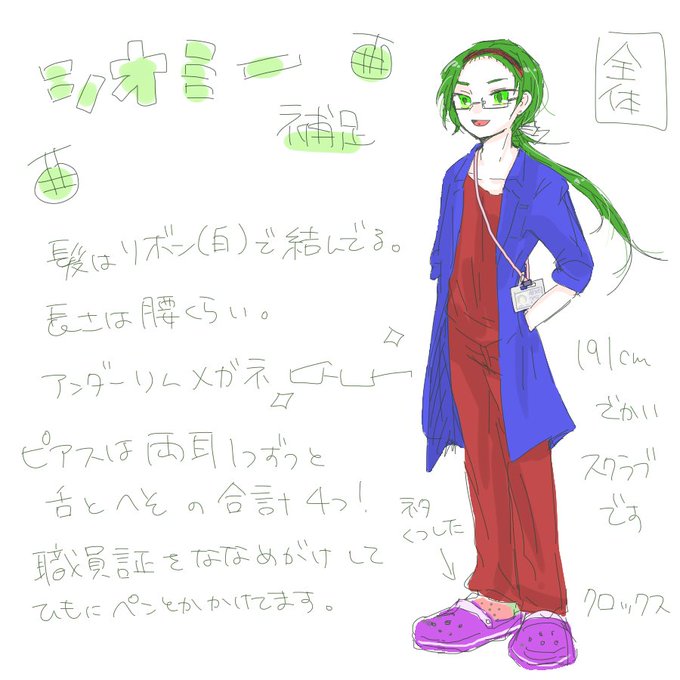 シオミー
補足
全体
髪はリボン(白)で結んでる。
長さは腰くらい。
アンダーリムメガネ
ピアスは両耳1つずつと
舌とへその合計4つ!
職員証をななめがけして
ひもにペンとかかけてます。
191cm
でかい
スクラブ
です
ネタ
くつした
クロックス